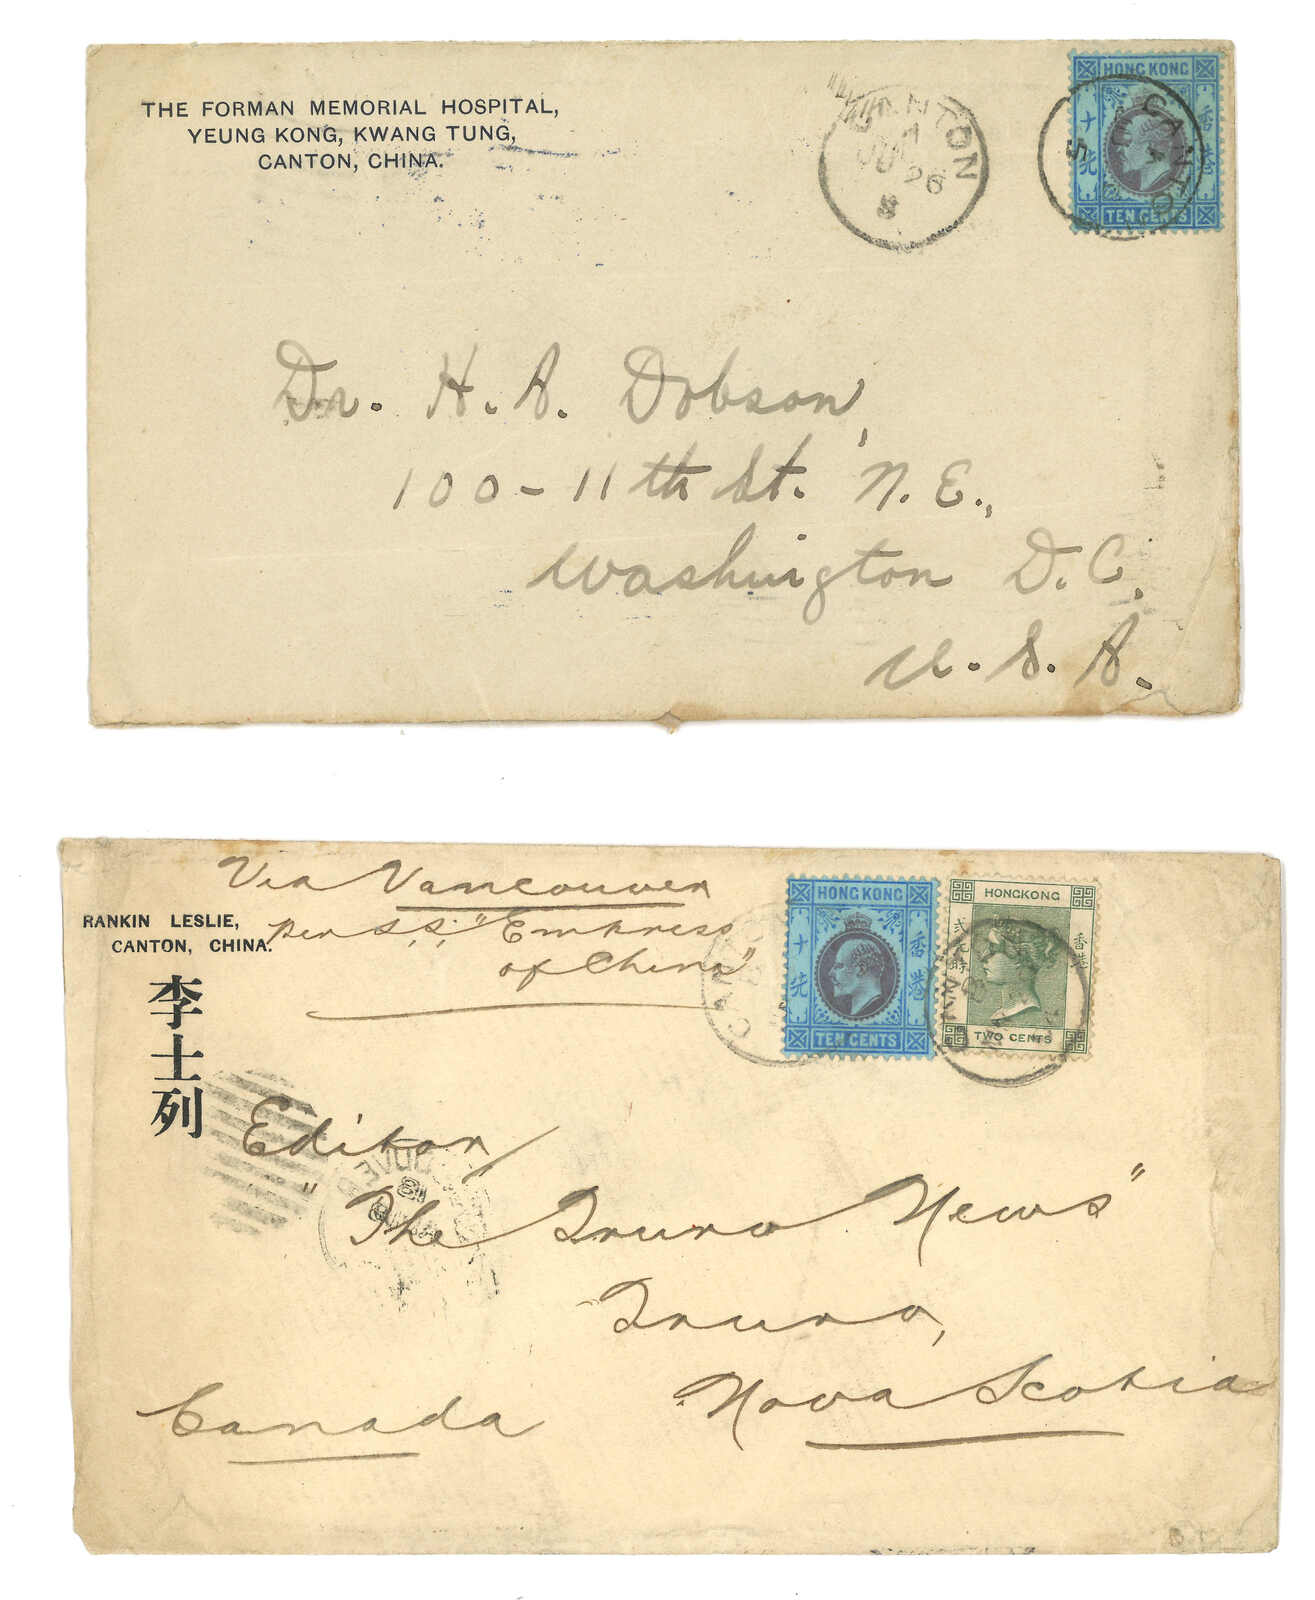 THE FORMAN MEMORIAL HOSPITAL,
YEUNG KONG, KWANG TUNG,
CANTON, CHINA.
CANTON
26
HONG KONG
香港
TEN CENTS
CANTON
Dr. H. A. Dobson,
100 - 11th St. N. E.,
Washington D. C.
U. S. A.
Via Vancouver
per S.S. "Empress
of China"
RANKIN LESLIE,
CANTON, CHINA.
李士列
HONG KONG
香港
TEN CENTS
HONGKONG
香港
TWO CENTS
CANTON
Editor,
"The Truro News"
Truro,
Nova Scotia
Canada